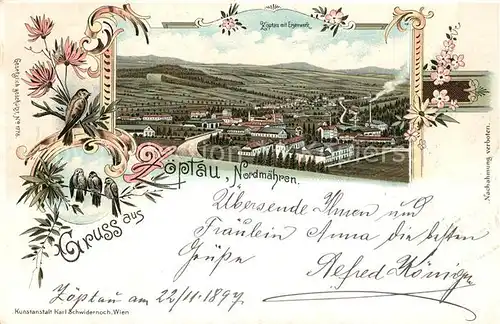 Zöptau mit Eisenwerk.
Gesetzlich geschützt No
Nachahmung verboten.
Gruss aus
Zöptau, Nordmähren.
Übersende Ihnen und
Fräulein Anna die besten
Grüße
Alfred König
Zöptau am 22/11. 1897
Kunstanstalt Karl Schwidernoch, Wien